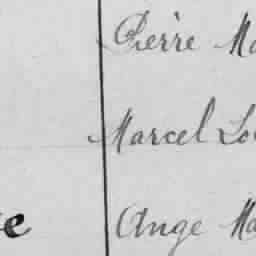 Pierre Ma
Marcel Lo
Ange Ma